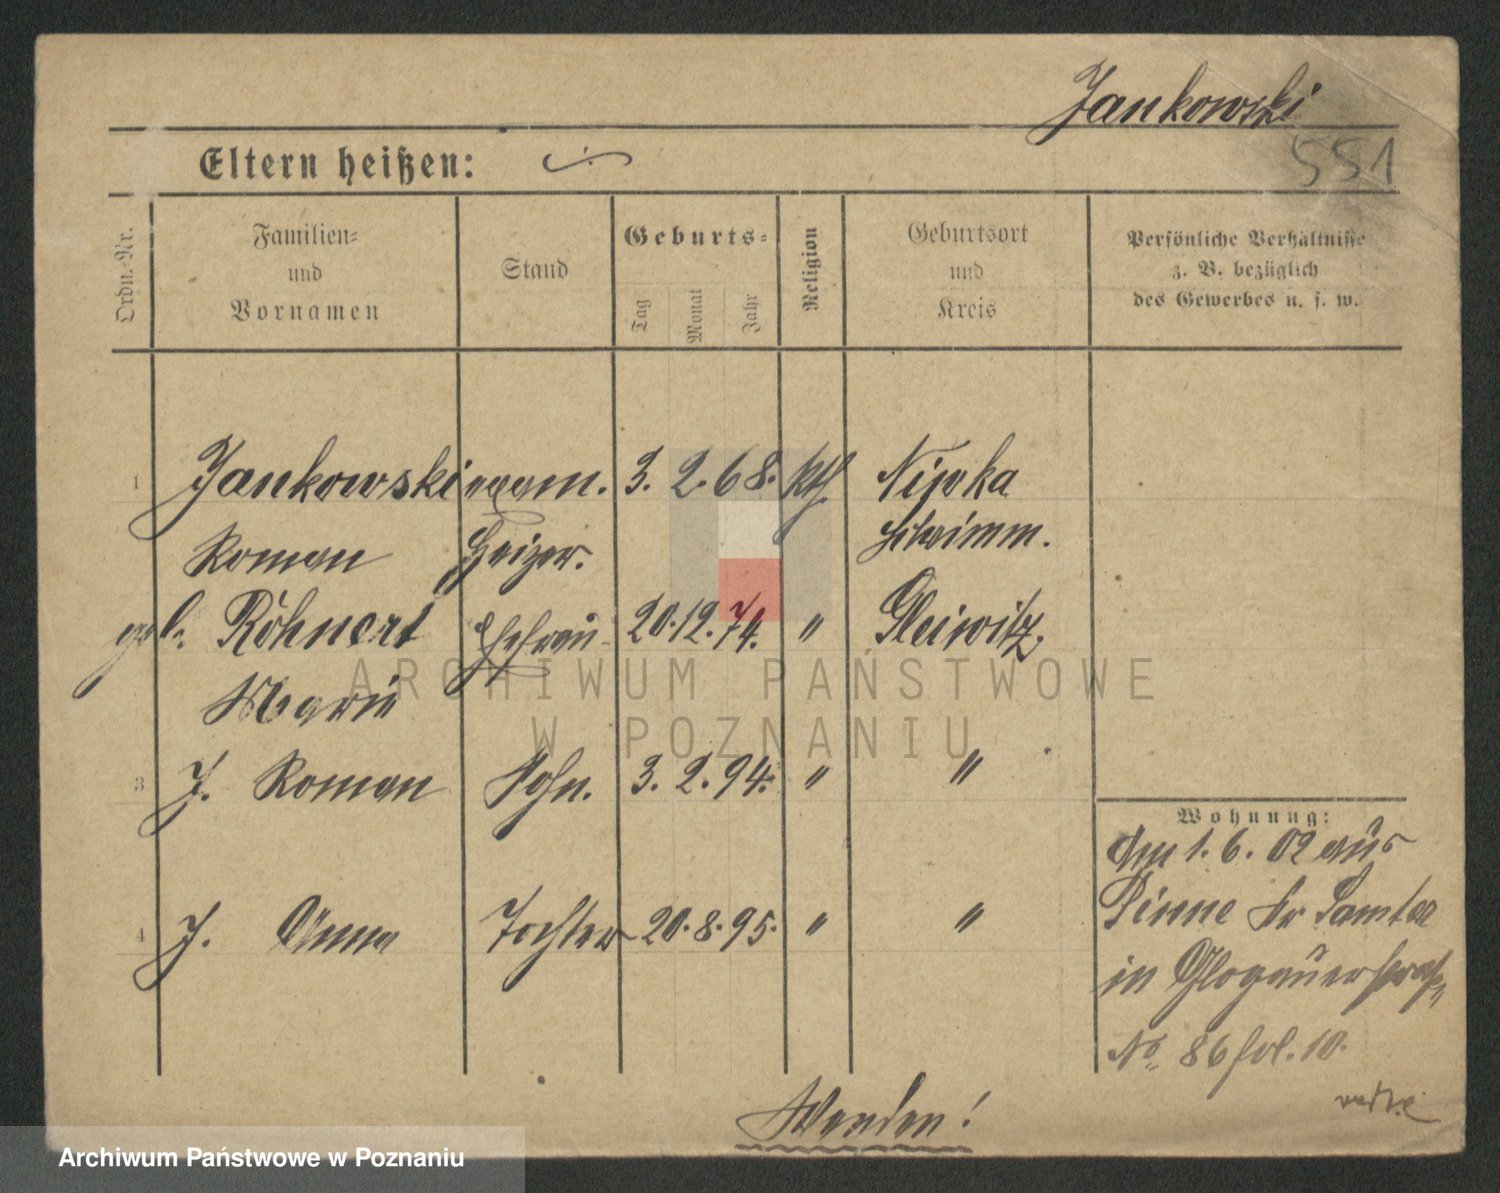 Jankowski
551
Eltern heißen: ·/·
Ordn. Nr.
Familien-
und
Vornamen
Stand
Geburts-
Tag
Monat
Jahr
Religion
Geburtsort
und
Kreis
Persönliche Verhältnisse
z. B. bezüglich
des Gewerbes u. s. w.
1 Jankowski 3. 2. 68. kth. Niwka
Roman Heizer. Schrimm.
geb. Röhnert Ehefrau 20. 12. 74. " Gleiwitz.
Marie
3 J. Roman Sohn. 3. 2. 94. " "
4 J. Anna Tochter 20. 8. 95. " "
Wohnung:
Am 1. 6. 02 aus
Pinne Kr Samter
in Glogauerstraße
No. 86 fol. 10.
Wenden!
ARCHIWUM PAŃSTWOWE
W POZNANIU
Archiwum Państwowe w Poznaniu